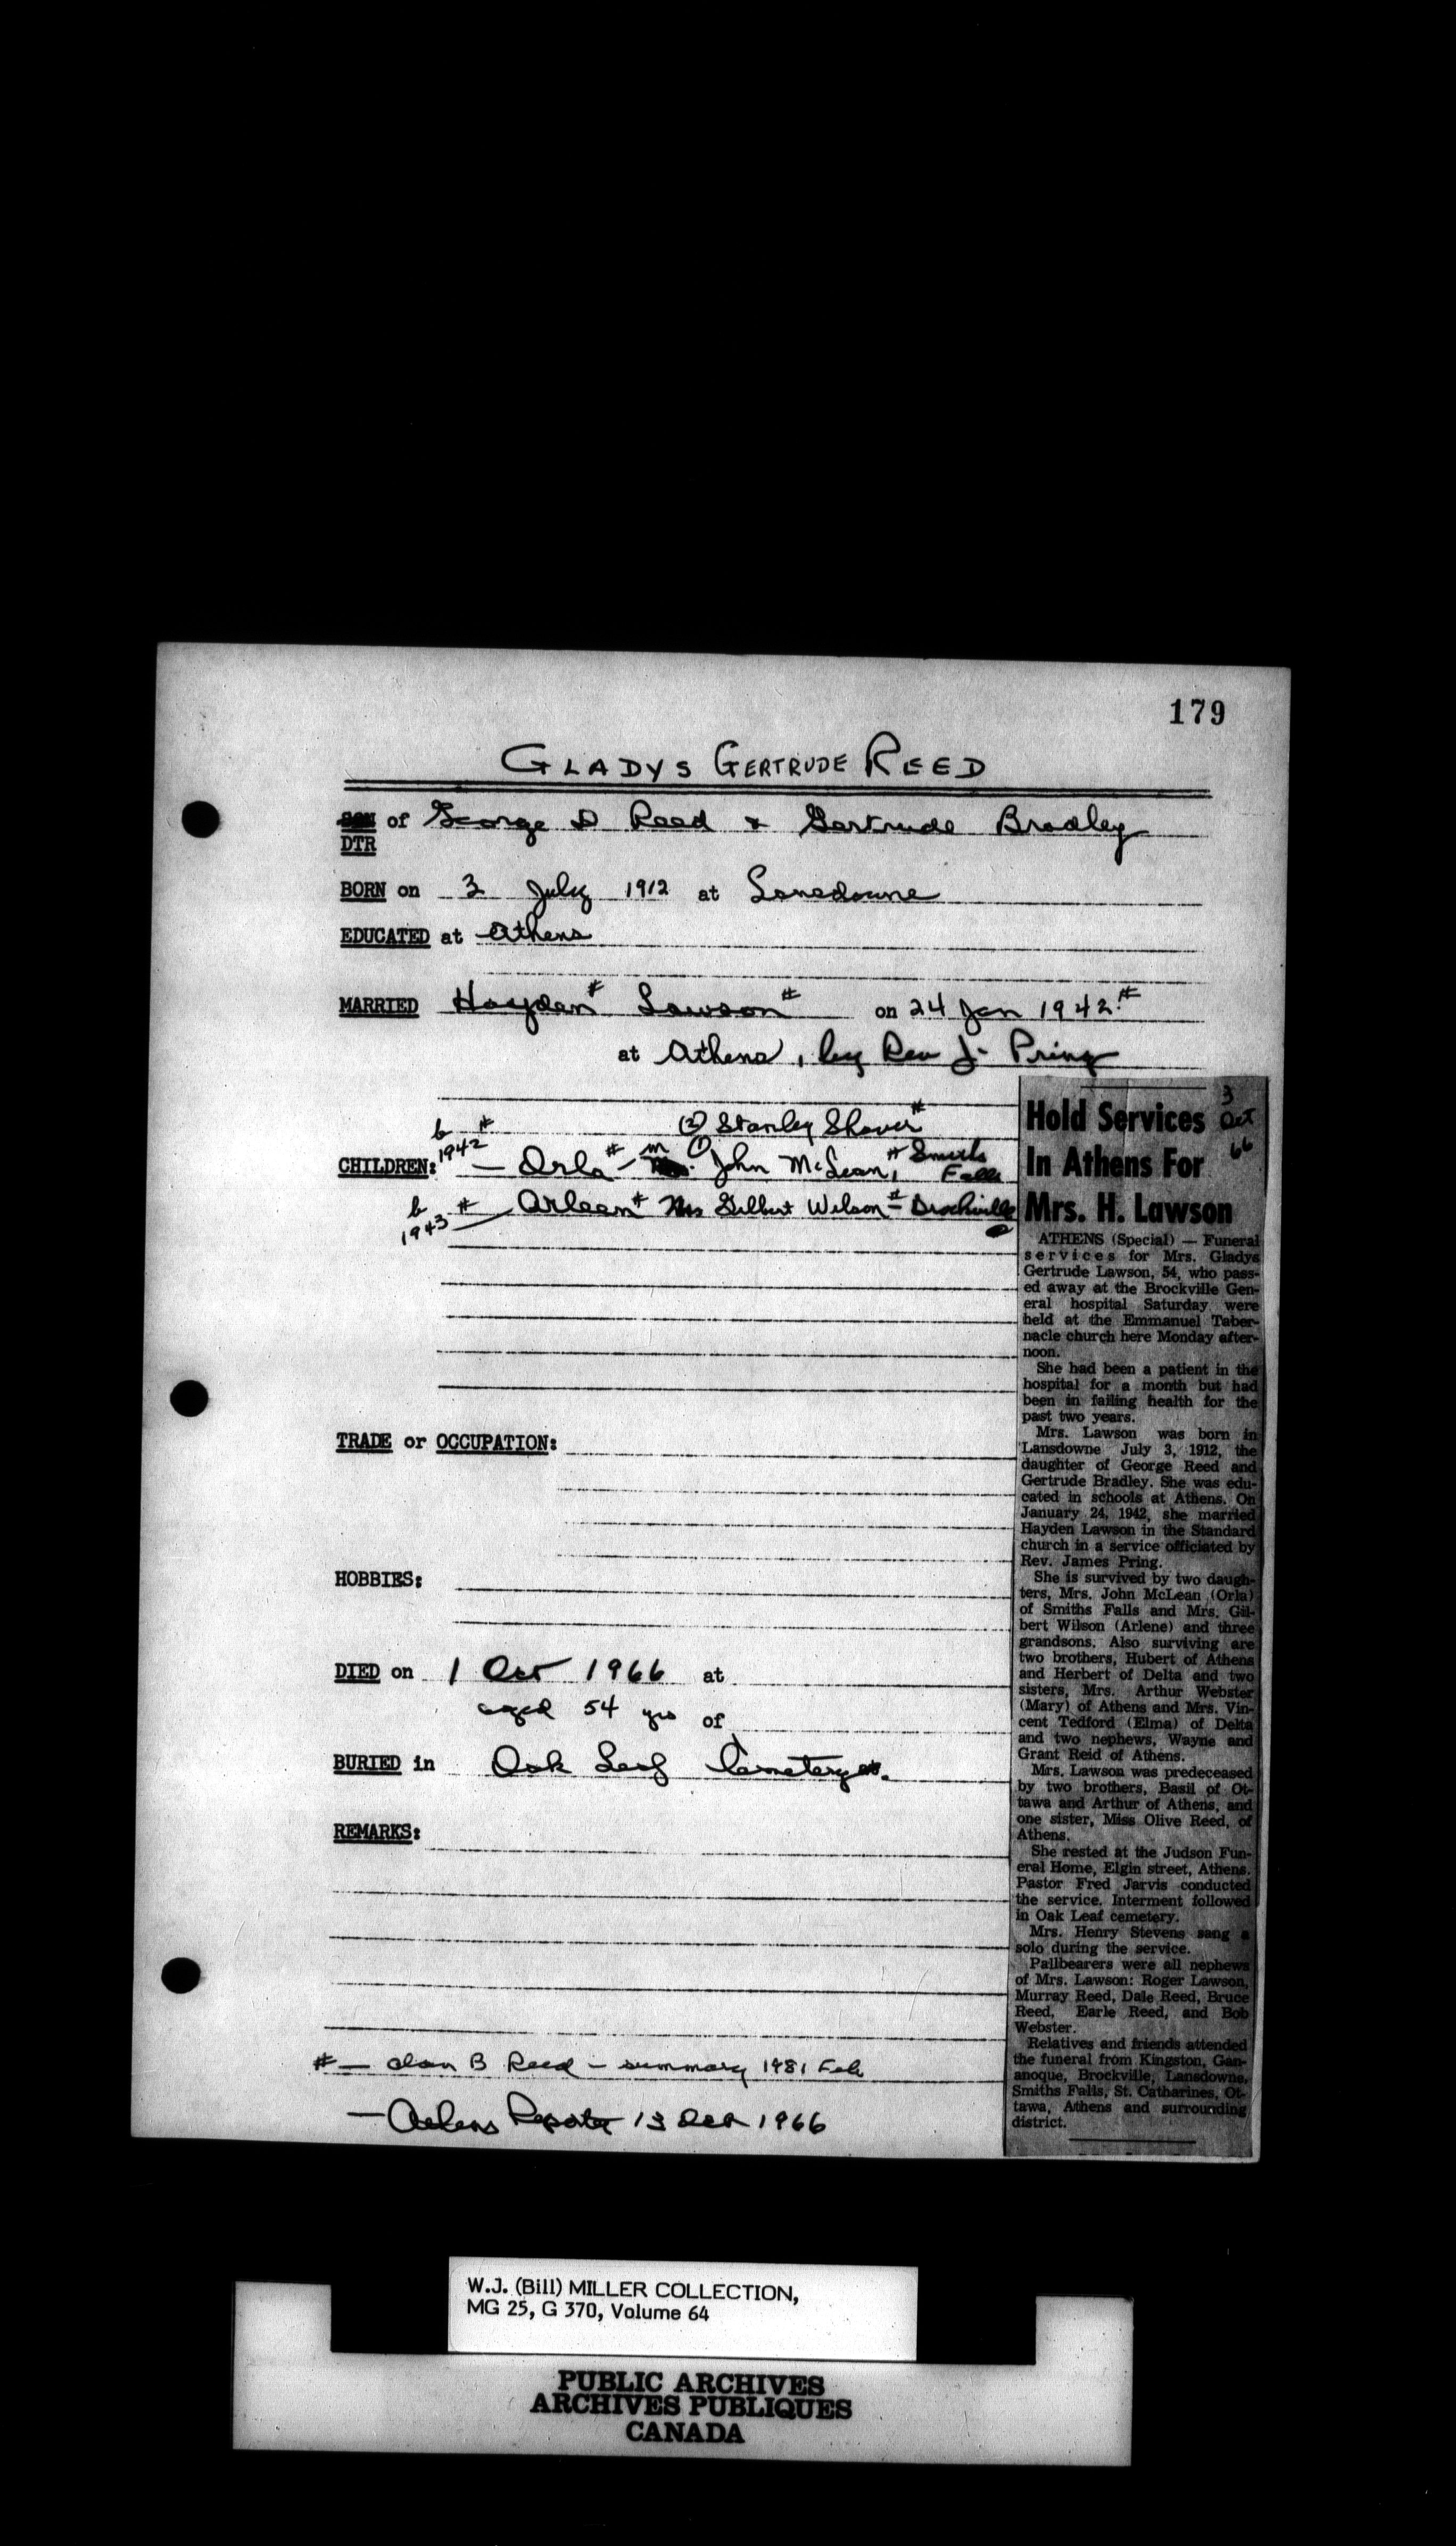 179
GLADYS GERTRUDE REED
SON of George D Reed & Gertrude Bradley
DTR
BORN on 3 July 1912 at Lansdowne
EDUCATED at Athens
MARRIED Hayden # Lawson # on 24 Jan 1942 #
at Athens, by Rev J. Pring
b 1942 # (2) Stanley Shaver #
CHILDREN: — Orla # — m (1) John McLean, # Smiths Falls
b 1943 # — Arleen # Mrs Gilbert Wilson # — Brockville
TRADE or OCCUPATION:
HOBBIES:
DIED on 1 Oct 1966 at
aged 54 yrs of
BURIED in Oak Leaf Cemetery #.
REMARKS:
# — Alan B Reed — summary 1981 Feb
— Athens Reporter 13 Oct 1966
3 Oct 66
Hold Services
In Athens For
Mrs. H. Lawson
ATHENS (Special) — Funeral
services for Mrs. Gladys
Gertrude Lawson, 54, who pass-
ed away at the Brockville Gen-
eral hospital Saturday were
held at the Emmanuel Taber-
nacle church here Monday after-
noon.
She had been a patient in the
hospital for a month but had
been in failing health for the
past two years.
Mrs. Lawson was born in
Lansdowne July 3, 1912, the
daughter of George Reed and
Gertrude Bradley. She was edu-
cated in schools at Athens. On
January 24, 1942, she married
Hayden Lawson in the Standard
church in a service officiated by
Rev. James Pring.
She is survived by two daugh-
ters, Mrs. John McLean (Orla)
of Smiths Falls and Mrs. Gil-
bert Wilson (Arlene) and three
grandsons. Also surviving are
two brothers, Hubert of Athens
and Herbert of Delta and two
sisters, Mrs. Arthur Webster
(Mary) of Athens and Mrs. Vin-
cent Tedford (Elma) of Delta
and two nephews, Wayne and
Grant Reid of Athens.
Mrs. Lawson was predeceased
by two brothers, Basil of Ot-
tawa and Arthur of Athens, and
one sister, Miss Olive Reed, of
Athens.
She rested at the Judson Fun-
eral Home, Elgin street, Athens.
Pastor Fred Jarvis conducted
the service. Interment followed
in Oak Leaf cemetery.
Mrs. Henry Stevens sang a
solo during the service.
Pallbearers were all nephews
of Mrs. Lawson: Roger Lawson,
Murray Reed, Dale Reed, Bruce
Reed, Earle Reed, and Bob
Webster.
Relatives and friends attended
the funeral from Kingston, Gan-
anoque, Brockville, Lansdowne,
Smiths Falls, St. Catharines, Ot-
tawa, Athens and surrounding
district.
W.J. (Bill) MILLER COLLECTION,
MG 25, G 370, Volume 64
PUBLIC ARCHIVES
ARCHIVES PUBLIQUES
CANADA